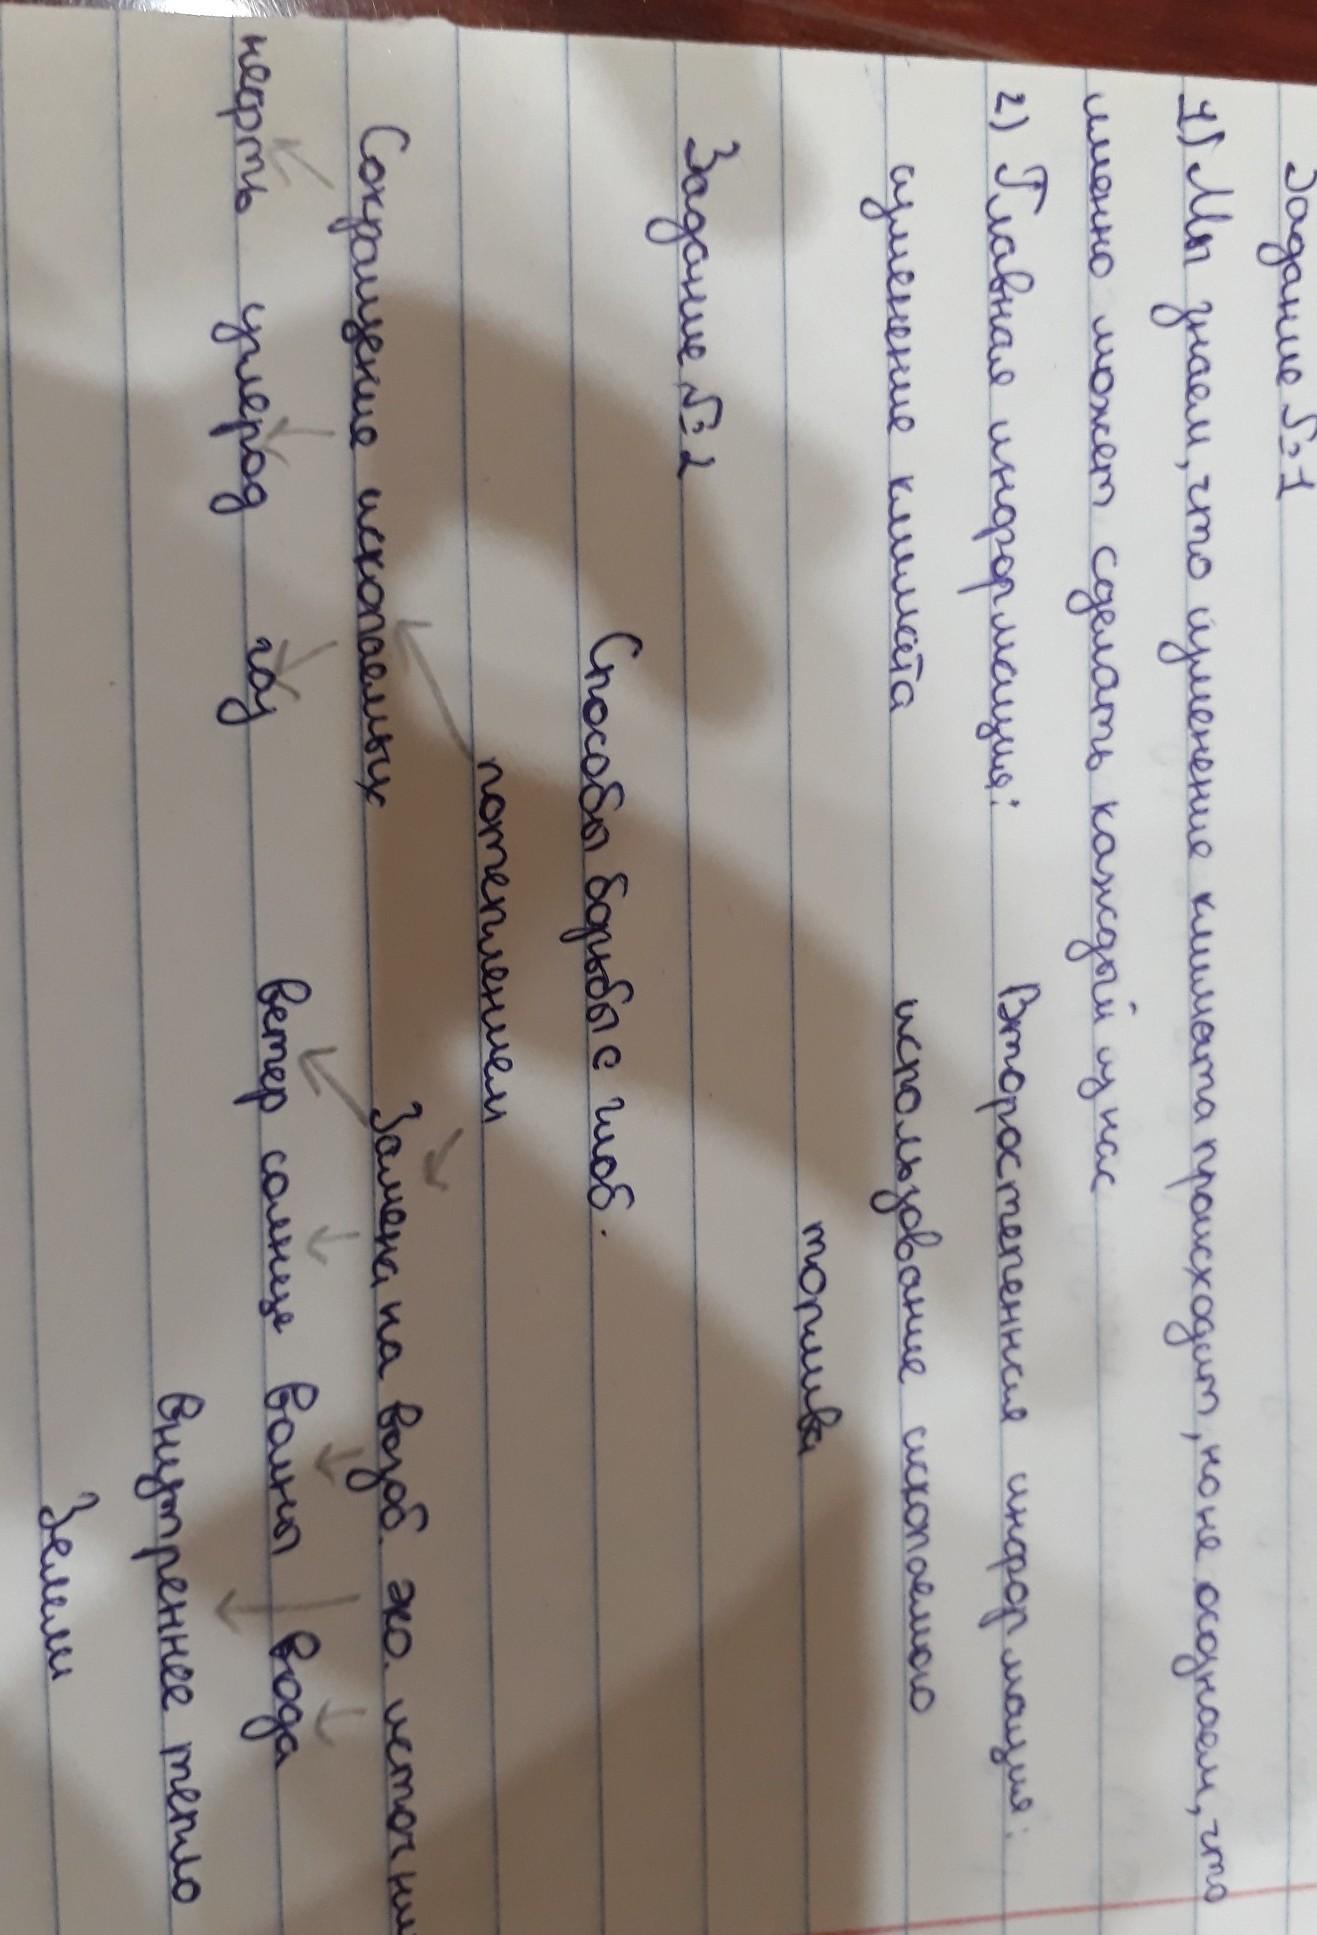 Задание №1
1) Мы знаем, что изменение климата происходит, но не осознаем, что
именно может сделать каждый из нас
2) Главная информация: Второстепенная информация:
изменение климата использование ископаемого
топлива
Задание №2
Способы борьбы с глоб.
потеплением
Сокращение ископаемых Замена на возоб. эко. источни
нефть углерод газ ветер солнце волны вода
внутреннее тепло
Земли